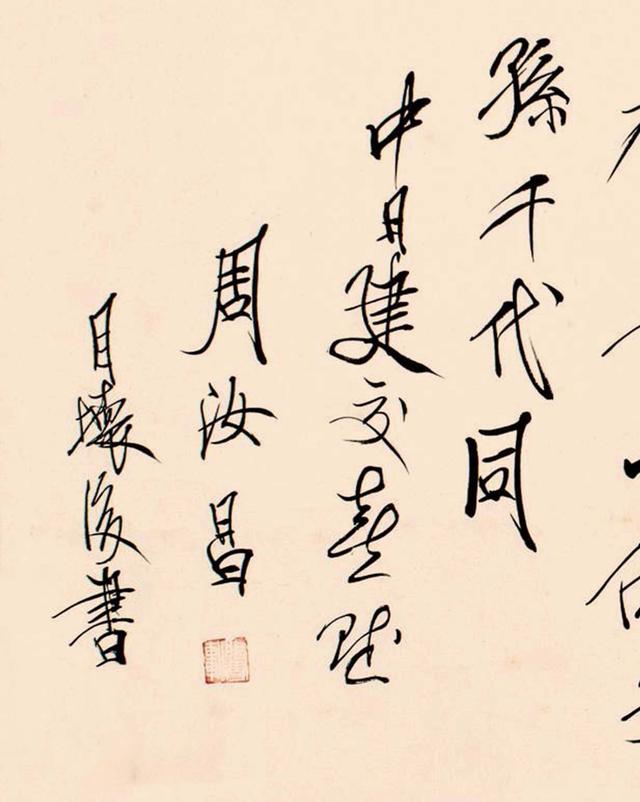 孫千代同
中日建交喜賦
周汝昌
目壞後書